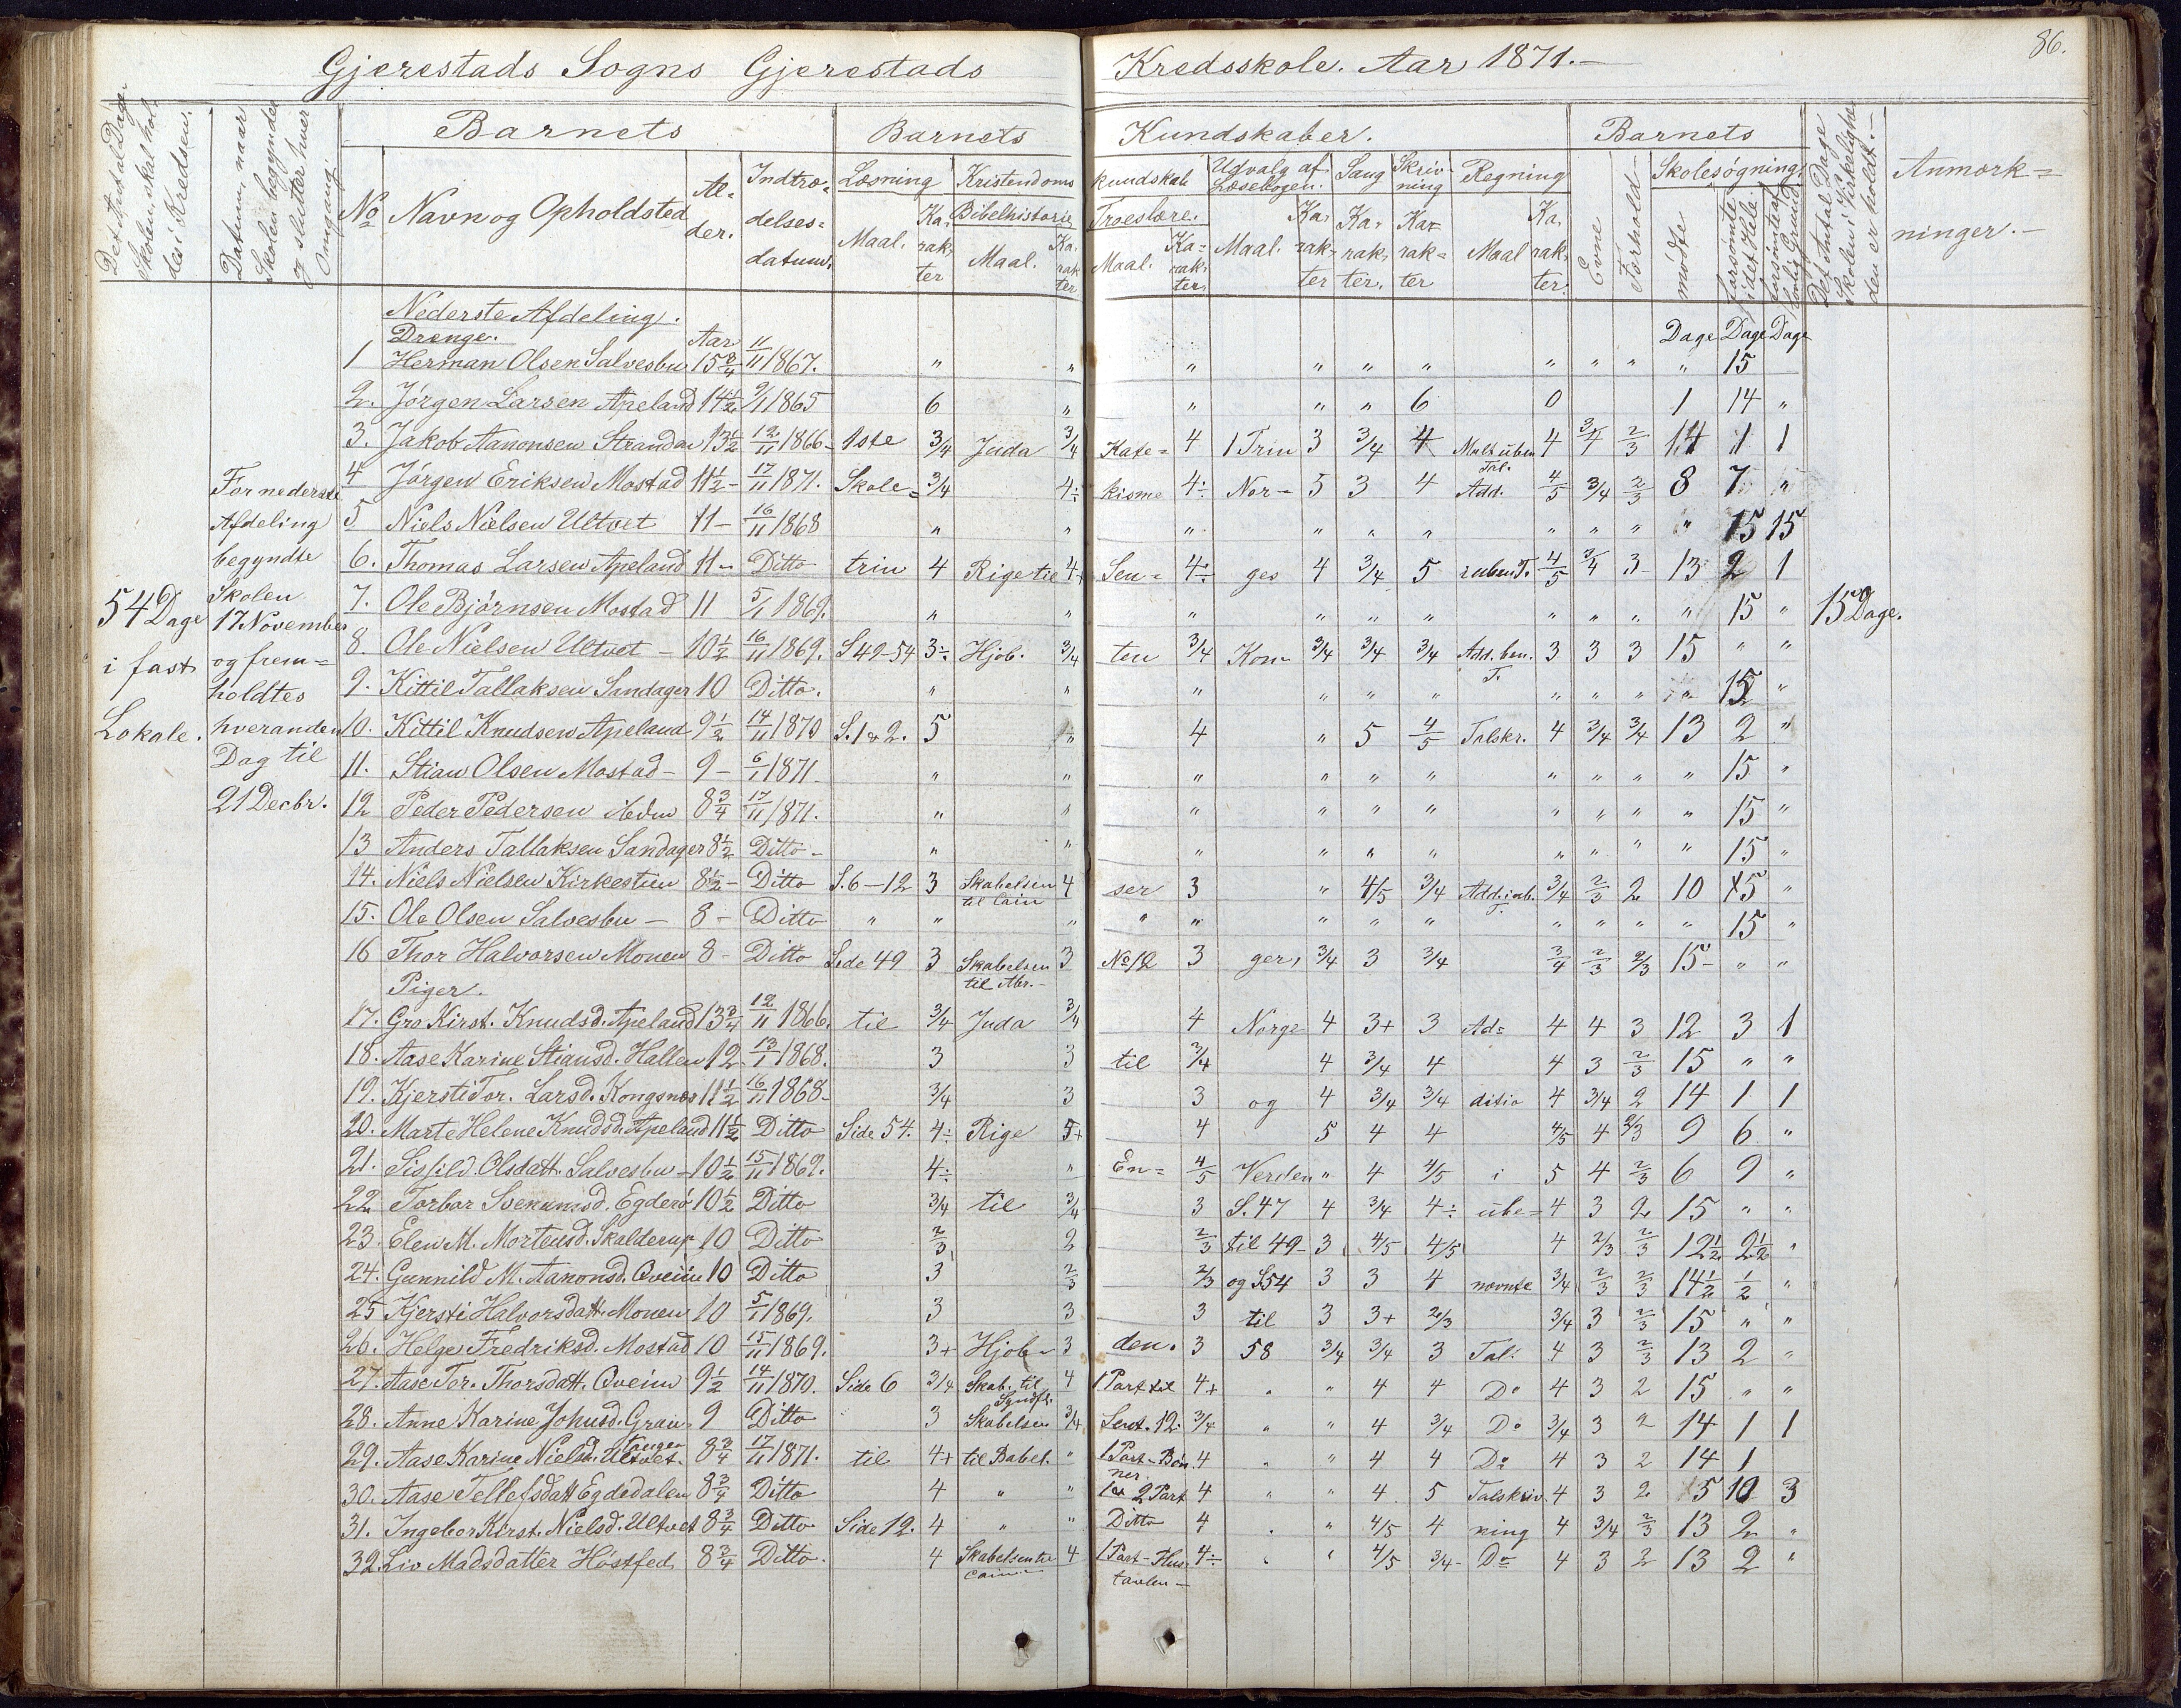 Gjerestads Sogns Gjerestads Kredsskole. Aar 1871.-
86.
Det Antal Dage Skolen skal holdes i Kredsen.
Datum, naar Skolen begynder og slutter hver Omgang
Barnets
Barnets Kundskaber.
Barnets
Det Antal Dage Skolen i Virkelighden er holdt.-
Anmærkninger.-
No
Navn og Opholdsted
Alder.
Indtrædelsesdatum.
Læsning
Maal.
Karakter
Kristendomskundskab
Bibelhistorie
Maal.
Karakter
Troeslære.
Maal.
Karakter
Udvalg af Læsebogen.
Maal.
Karakter
Sang
Karakter.
Skrivning
Karakter
Regning
Maal
Karakter.
Evne
Forhold
Skolesøgning.
mødte
forsømte i det Hele
forsømte af lovlig Grund
54 Dage i fast Lokale.
For nederste
Afdeling
begyndte
Skolen
17 November
og frem=
holdtes
hveranden
Dag til
21 Decbr.
15 Dage.
Nederste Afdeling.
Drenge. Aar Dage Dage Dage
1 Herman Olsen Salvesbu 15 3/4 11/11 1867. " " " " " " " " " " 15
2. Jørgen Larsen Apeland 14 1/2 9/1 1865 6 " " " " 6 0 1 14 "
3. Jakob Aanonsen Strandan 13 1/2 12/11 1866- 1ste 3/4 Juda 3/4 Kate= 4 1 Trin 3 3/4 4 Mult. i uben. Tal. 4 3/4 2/3 14 1 1
4 Jørgen Eriksen Mostad 11 1/2 - 17/11 1871. Skole= 3/4 4÷ kisme 4÷ Nor- 5 3 4 Add. 4/5 3/4 2/3 8 7 "
5 Niels Nielsen Ultvet 11- 16/11 1868 " " " " " " " " " " 15 15
6. Thomas Larsen Apeland 11- Ditto trin 4 Rige til 4+ Sen= 4÷ ges 4 3/4 5 i uben T. 4/5 3/4 3 13 2 1
7. Ole Bjørnsen Mostad 11 5/1 1869. " " " " " " " " " " 15 "
8. Ole Nielsen Ultvet - 10 1/2 16/11 1869. S 49-54 3÷ Hjob. 3/4 ten 3/4 Kon- 3/4 3/4 3/4 Add. ben. T. 3 3 3 15 " "
9. Kittil Tallaksen Sandager 10 Ditto. " " " " " " " " " " 15 "
10. Kittil Knudsen Apeland 9 1/2 14/11 1870 S. 1 & 2. 5 " 4 " 5 4/5 Talskr. 4 3/4 3/4 13 2 "
11. Stian Olsen Mostad - 9- 6/1 1871- " " " " " " " " " " 15 "
12 Peder Pedersen 8 3/4 17/11 1871. " " " " " " " " " " 15 "
13 Anders Tallaksen Sandager 8 1/2 Ditto - " " " " " " " " " " 15 "
14. Niels Nielsen Kirkestien 8 1/2 - Ditto S. 6-12 3 Skabelsen til Cain 4 ser 3 " 4/5 3/4 Add. i ub. T. 3/4 2/3 2 10 5 "
15. Ole Olsen Salvesbu - 8- Ditto " " " " " " " " " " " " 15 "
16 Thor Halvorsen Monen 8- Ditto Side 49 3 Skabelsen til Abr.- 3 No 12 3 ger, 3/4 3 3/4 3/4 2/3 2/3 15- " "
Piger.
17. Gro Kirst. Knudsd. Apeland 13 3/4 12/11 1866. til 3/4 Juda 3/4 4 Norge 4 3+ 3 Ad= 4 4 3 12 3 1
18. Aase Karine Stiansd. Hallen 12 13/1 1868. 3 3 til 3/4 4 3/4 4 4 3 2/3 15 " "
19. Kjersti Tor. Larsd. Kongsnes 11 1/2 16/11 1868- 3/4 3 3 og 4 3/4 3/4 ditio 4 3/4 2 14 1 1
20. Marte Helene Knudsd. Apeland 11 1/2 Ditto Side 54. 4÷ Rige 5+ 4 5 4 4 4/5 4 2/3 9 6 "
21. Sigfild Olsdatt. Salvesbu - 10 1/2 15/11 1869. 4÷ " En= 4/5 Verden " 4 4/5 i 5 4 2/3 6 9 "
22 Torbor Svenumsd. Egderø 10 1/2 Ditto 3/4 til 3/4 3 S. 47 4 3/4 4÷ ube= 4 3 2 15 " "
23. Elen M. Mortensd. Skalderup 10 Ditto 2/3 2 2/3 til 49- 3 4/5 4/5 4 2/3 2/3 12 1/2 2 1/2 "
24. Gunnild M. Aanonsd. Qveim 10 Ditto 3 2/3 2/3 og S 54 3 3 4 nævnte 3/4 2/3 2/3 14 1/2 1/2 "
25 Kjersti Halvorsdatt. Monen 10 5/1 1869. 3 3 3 til 3 3+ 2/3 3/4 3 2/3 15 " "
26. Helge Fredriksd. Mostad 10 15/11 1869. 3+ Hjob- 3 den. 3 58 3/4 3/4 3 Tal. 4 3 2/3 13 2 "
27. Aase Tor. Thorsdatt. Qveim 9 1/2 14/11 1870. Side 6 3/4 Skab. til Syndfl. 4 1 Part til 4+ " " 4 4 Do 4 3 2 15 " "
28. Anne Karine Johnsd. Grain 9 Ditto 3 Skabelsen 3/4 Sent. 12. 3/4 " " 4 3/4 Do 3/4 3 2 14 1 1
29. Aase Karine Nielsd. Ultvet. tangen 8 3/4 17/11 1871. til 4+ til Babel. " 1 Part- Bønner. 4 " " 4 4 Do 4 3 2 14 1
30. Aase Tellefsdatt Egdedalen 8 3/4 Ditto 4 " " 1 & 2 Part 4 " " 4 5 Talskriv. 4 3 2 5 10 3
31. Ingebor Kirst. Nielsd. Ultvet 8 3/4 Ditto Side 12. 4 " " Ditto 4 " " 4/5 4 ning 4 3/4 2/3 13 2 "
32. Liv Madsdatter Høstfed 8 3/4 Ditto. 4 Skabelsen til Cain- 4 1 Part- Hus tavlen- 4÷ " " 4/5 3/4- Do 4 3 2 13 2 "